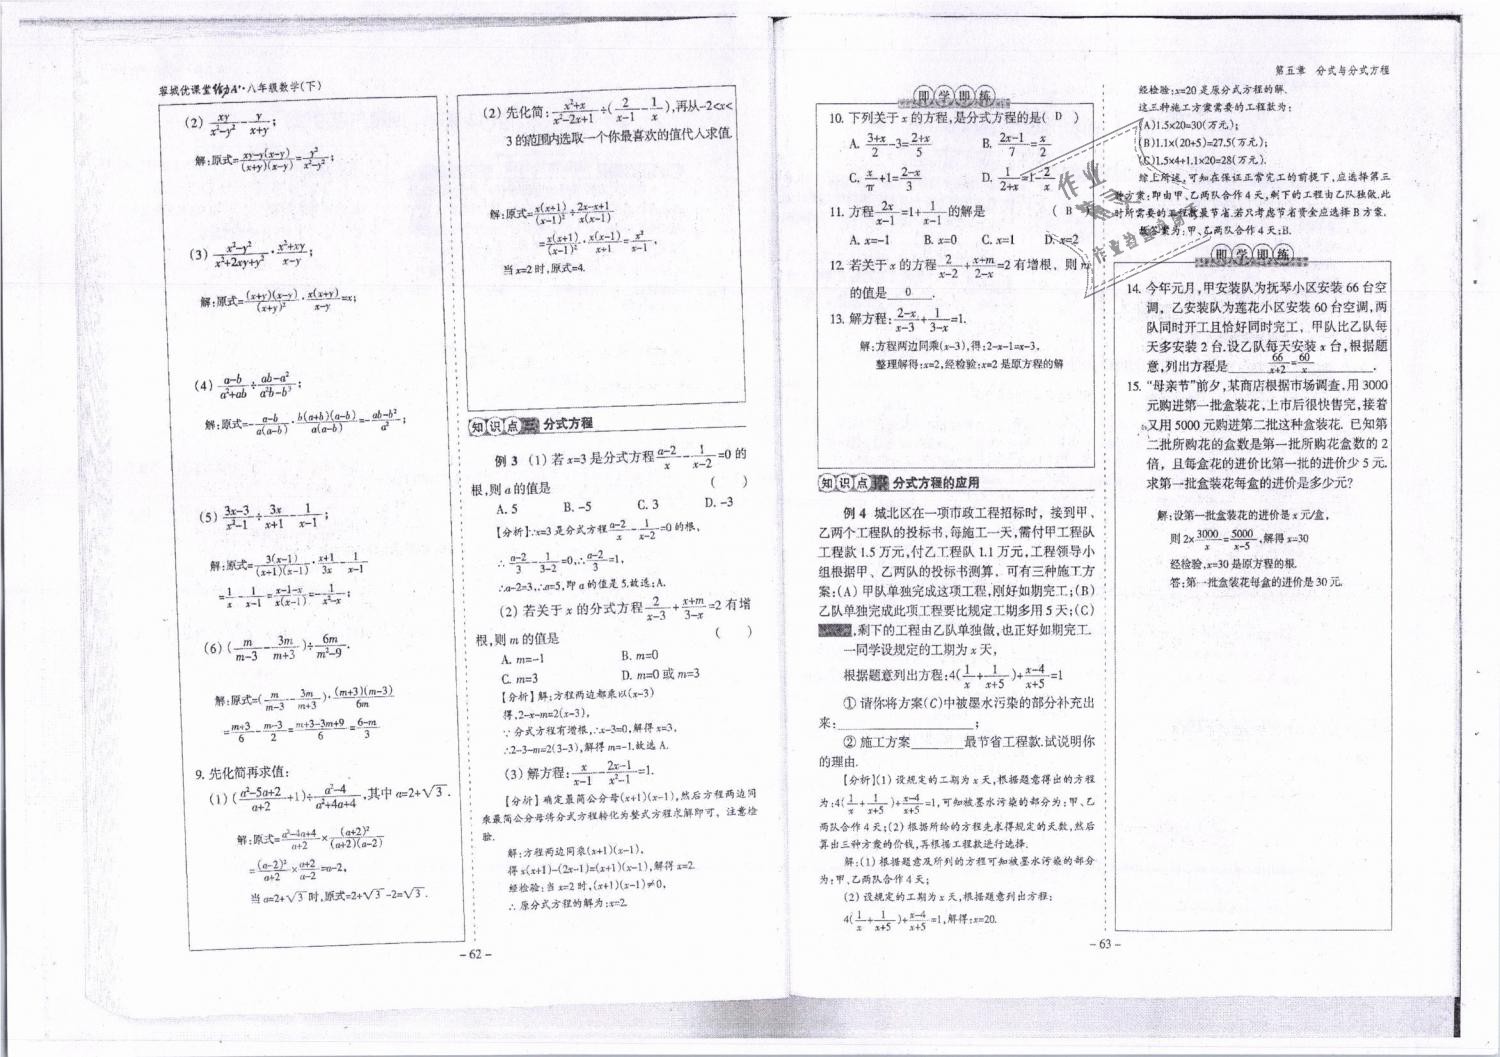 蓉城优课堂给力A⁺·八年级数学(下)
(2) xy/(x²-y²) - y/(x+y);
解:原式=(xy-y(x-y))/((x+y)(x-y))=y²/(x²-y²);
(3) (x²-y²)/(x²+2xy+y²)·(x²+xy)/(x-y);
解:原式=((x+y)(x-y))/(x+y)²·(x(x+y))/(x-y)=x;
(4) (a-b)/(a²+ab)÷(ab-a²)/(a²b-b³);
解:原式=-(a-b)/(a(a-b))·(b(a+b)(a-b))/(a(a-b))=-(ab-b²)/a²;
(5) (3x-3)/(x²-1)÷3x/(x+1)-1/(x-1);
解:原式=3(x-1)/((x+1)(x-1))·(x+1)/3x-1/(x-1)
=1/x-1/(x-1)=(x-1-x)/(x(x-1))=-1/(x²-x);
(6) (m/(m-3)-3m/(m+3))÷6m/(m²-9).
解:原式=(m/(m-3)-3m/(m+3))·((m+3)(m-3))/6m
=(m+3)/6-(m-3)/2=(m+3-3m+9)/6=(6-m)/3
9. 先化简再求值:
(1) ((a²-5a+2)/(a+2)+1)÷(a²-4)/(a²+4a+4),其中 a=2+√3.
解:原式=(a²-4a+4)/(a+2)×(a+2)²/((a+2)(a-2))
=(a-2)²/(a+2)×(a+2)/(a-2)=a-2,
当 a=2+√3 时,原式=2+√3-2=√3.
(2) 先化简:(x²+x)/(x²-2x+1)÷(2/(x-1)-1/x),再从-2<x<
3 的范围内选取一个你最喜欢的值代人求值.
解:原式=x(x+1)/(x-1)²÷(2x-x+1)/(x(x-1))
=x(x+1)/(x-1)²·x(x-1)/(x+1)=x²/(x-1).
当 x=2 时,原式=4.
知识点三 分式方程
例 3 (1) 若 x=3 是分式方程(a-2)/x-1/(x-2)=0 的
根,则 a 的值是 ( )
A. 5 B. -5 C. 3 D. -3
【分析】∵x=3 是分式方程(a-2)/x-1/(x-2)=0 的根,
∴(a-2)/3-1/(3-2)=0,∴(a-2)/3=1,
∴a-2=3,∴a=5,即 a 的值是 5.故选:A.
(2) 若关于 x 的分式方程2/(x-3)+(x+m)/(3-x)=2 有增
根,则 m 的值是 ( )
A. m=-1 B. m=0
C. m=3 D. m=0 或 m=3
【分析】解:方程两边都乘以(x-3)
得,2-x-m=2(x-3),
∵分式方程有增根,∴x-3=0,解得 x=3,
∴2-3-m=2(3-3),解得 m=-1.故选 A.
(3) 解方程:x/(x-1)-(2x-1)/(x²-1)=1.
【分析】确定最简公分母(x+1)(x-1),然后方程两边同
乘最简公分母将分式方程转化为整式方程求解即可,注意检
验.
解:方程两边同乘(x+1)(x-1),
得 x(x+1)-(2x-1)=(x+1)(x-1),解得 x=2.
经检验:当 x=2 时,(x+1)(x-1)≠0,
∴原分式方程的解为:x=2.
-62-
第五章 分式与分式方程
即学即练
10. 下列关于 x 的方程,是分式方程的是( D )
A. (3+x)/2-3=(2+x)/5 B. (2x-1)/7=x/2
C. x/π+1=(2-x)/3 D. 1/(2+x)=1-2/x
11. 方程2x/(x-1)=1+1/(x-1)的解是 ( B )
A. x=-1 B. x=0 C. x=1 D. x=2
12. 若关于 x 的方程2/(x-2)+(x+m)/(2-x)=2 有增根,则 m
的值是 0 .
13. 解方程:(2-x)/(x-3)+1/(3-x)=1.
解:方程两边同乘(x-3),得:2-x-1=x-3,
整理解得:x=2,经检验:x=2 是原方程的解
知识点四 分式方程的应用
例 4 城北区在一项市政工程招标时,接到甲、
乙两个工程队的投标书,每施工一天,需付甲工程队
工程款 1.5 万元,付乙工程队 1.1 万元,工程领导小
组根据甲、乙两队的投标书测算,可有三种施工方
案:(A)甲队单独完成这项工程,刚好如期完工;(B)
乙队单独完成此项工程要比规定工期多用 5 天;(C)
,剩下的工程由乙队单独做,也正好如期完工.
一同学设规定的工期为 x 天,
根据题意列出方程:4(1/x+1/(x+5))+(x-4)/(x+5)=1
①请你将方案(C)中被墨水污染的部分补充出
来:____________;
②施工方案______最节省工程款.试说明你
的理由.
【分析】(1)设规定的工期为 x 天,根据题意得出的方程
为:4(1/x+1/(x+5))+(x-4)/(x+5)=1,可知被墨水污染的部分为:甲、乙
两队合作 4 天;(2)根据所给的方程先求得规定的天数,然后
算出三种方案的价钱,再根据工程款进行选择.
解:(1)根据题意及所列的方程可知被墨水污染的部分
为:甲、乙两队合作 4 天;
(2)设规定的工期为 x 天,根据题意列出方程:
4(1/x+1/(x+5))+(x-4)/(x+5)=1,解得:x=20.
经检验:x=20 是原分式方程的解.
这三种施工方案需要的工程款为:
(A)1.5×20=30(万元);
(B)1.1×(20+5)=27.5(万元);
(C)1.5×4+1.1×20=28(万元).
综上所述,可知在保证正常完工的前提下,应选择第三
种方案:即由甲、乙两队合作 4 天,剩下的工程由乙队独做.此
时所需要的工程款最节省.若只考虑节省资金应选择 B 方案.
故答案为:甲、乙两队合作 4 天;B.
即学即练
14. 今年元月,甲安装队为抚琴小区安装 66 台空
调,乙安装队为莲花小区安装 60 台空调,两
队同时开工且恰好同时完工,甲队比乙队每
天多安装 2 台.设乙队每天安装 x 台,根据题
意,列出方程是 66/(x+2)=60/x .
15. “母亲节”前夕,某商店根据市场调查,用 3000
元购进第一批盒装花,上市后很快售完,接着
又用 5000 元购进第二批这种盒装花. 已知第
二批所购花的盒数是第一批所购花盒数的 2
倍,且每盒花的进价比第一批的进价少 5 元.
求第一批盒装花每盒的进价是多少元?
解:设第一批盒装花的进价是 x 元/盒,
则 2×3000/x=5000/(x-5),解得 x=30
经检验,x=30 是原方程的根.
答:第一批盒装花每盒的进价是 30 元.
-63-